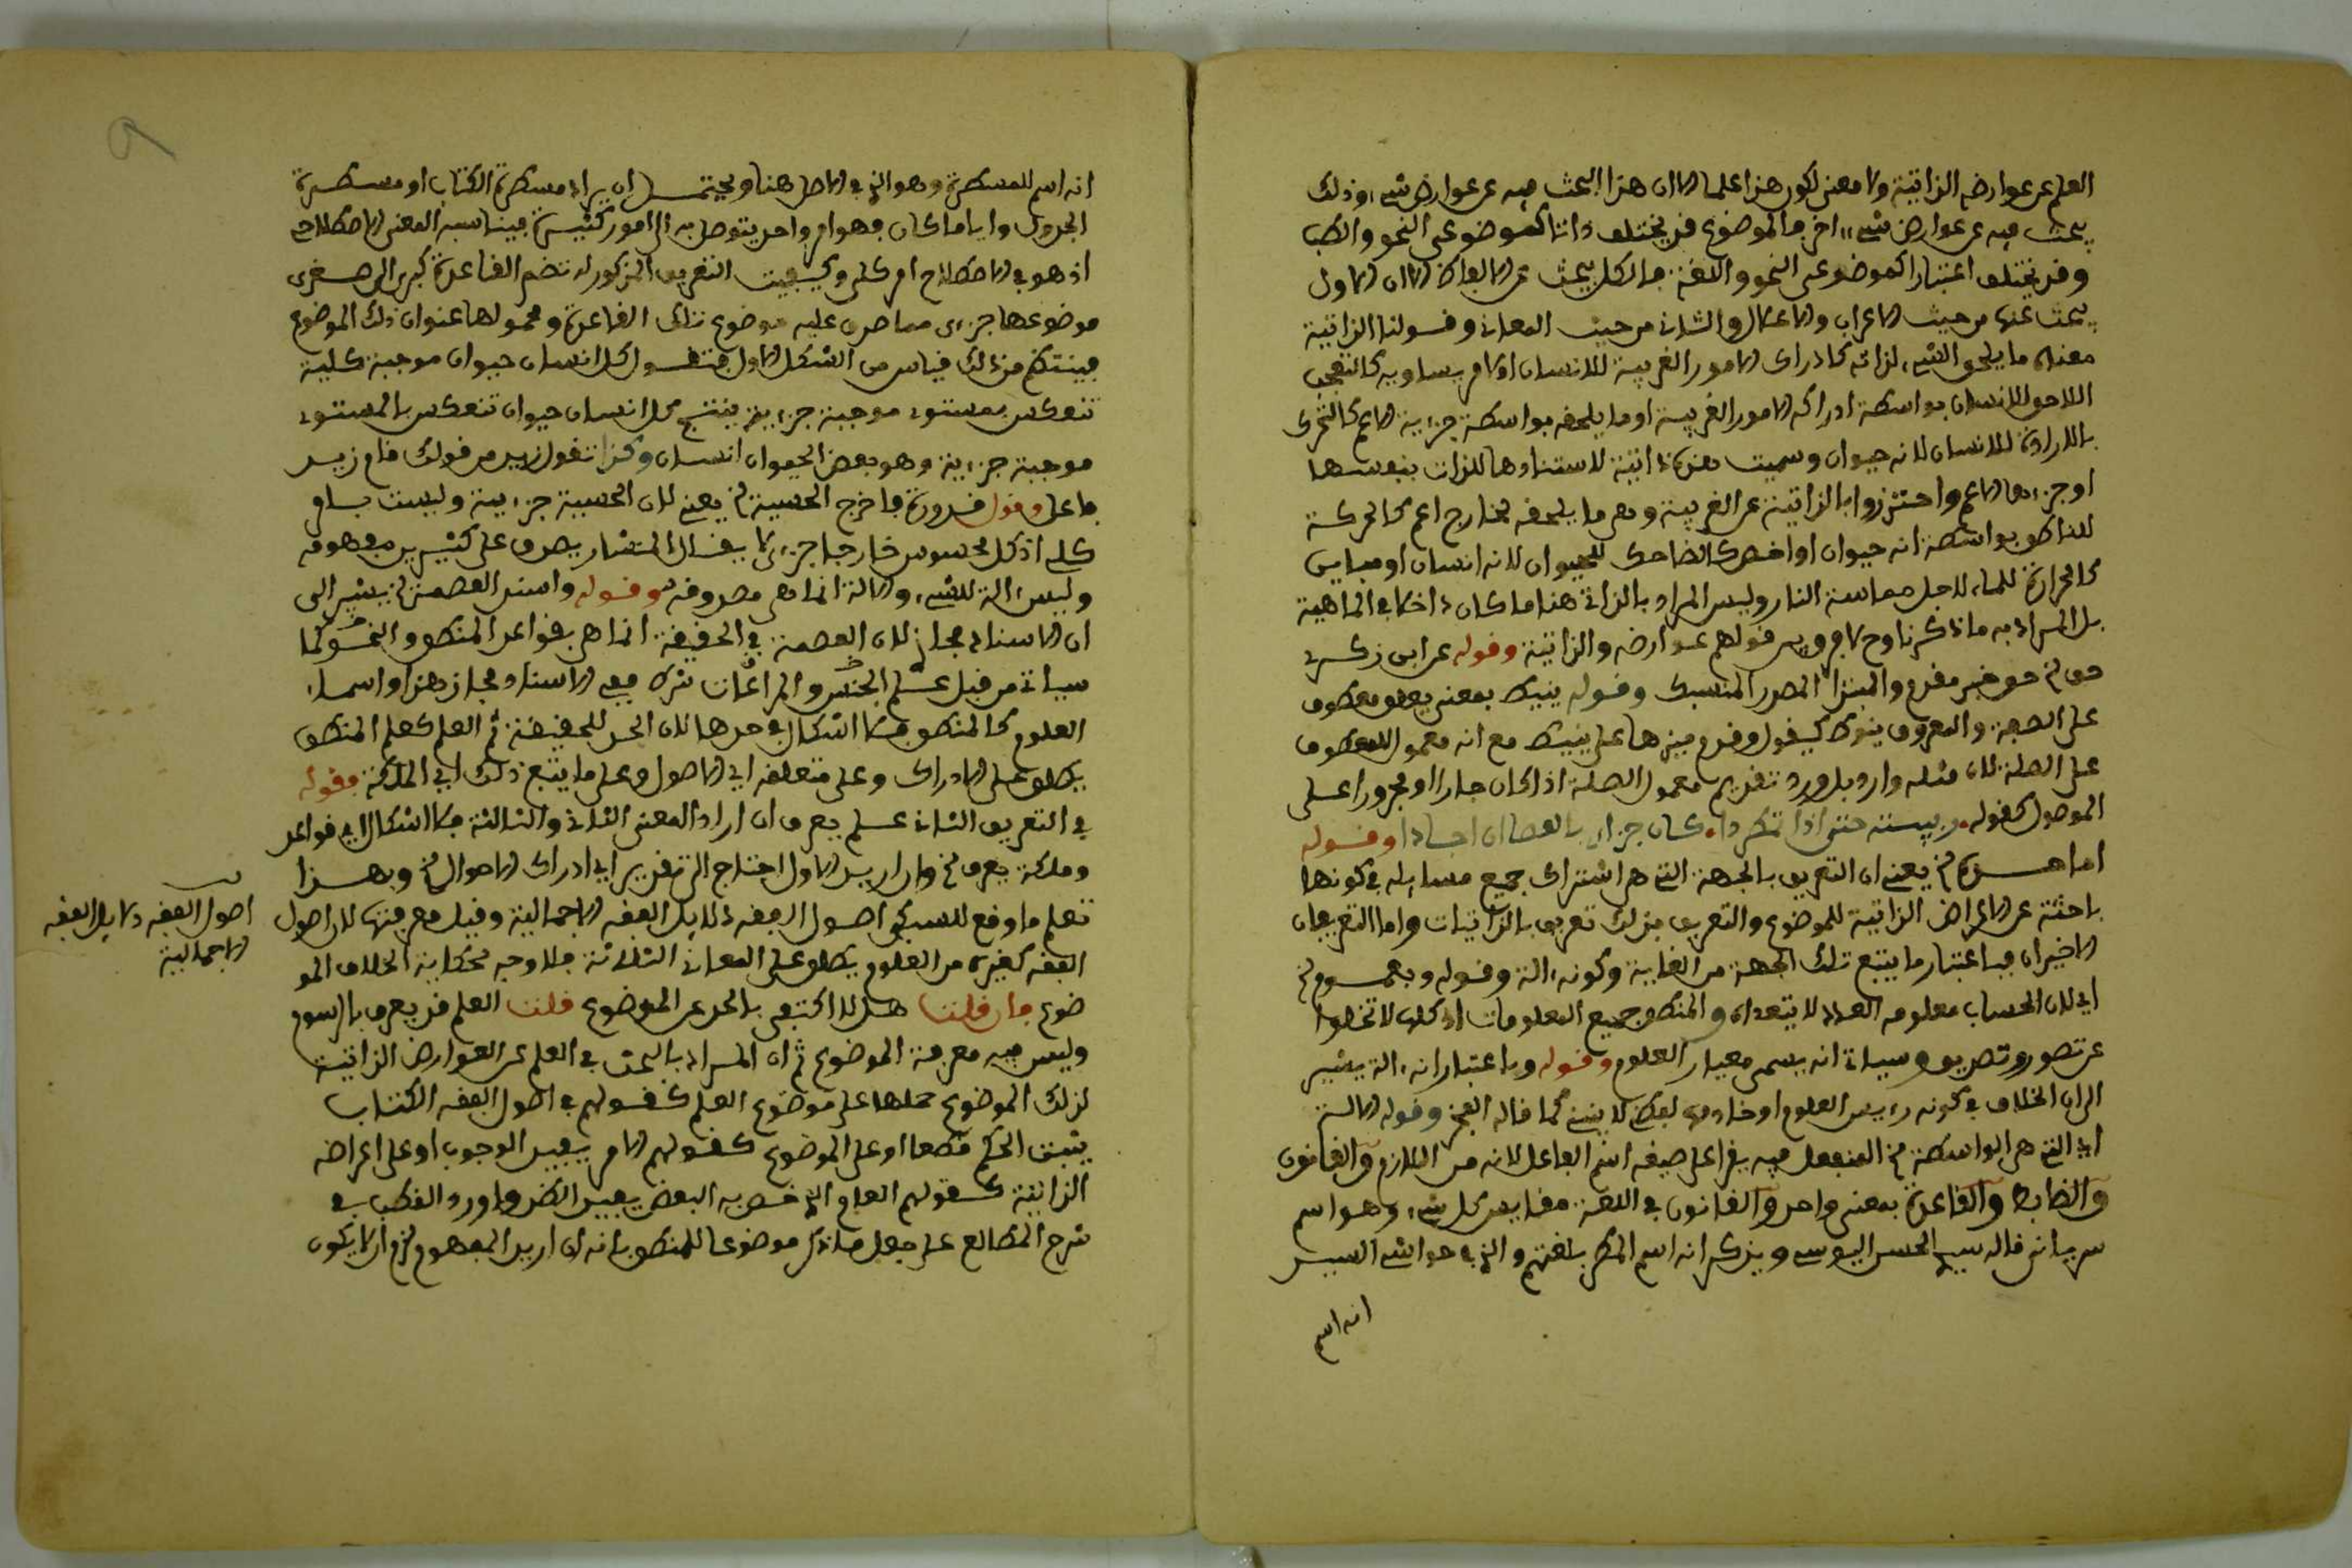 العلم عن عوارضه الذاتية ولا معنى لكون هذا علما الا ان هذا البحث فيه عن عوارض شيء وذلك
يبحث فيه عن عوارض شيء اخر فالموضوع قد يختلف ذاتا كموضوعي النحو والطب
وقد يختلف اعتبارا كموضوعي النحو واللغة فالكل يبحث عن الالفاظ الا ان الاول
يبحث عنها من حيث الاعراب والاعلال والثاني من حيث المعاني وقولنا الذاتية
معناه ما يلحق الشيء لذاته كادراك الامور الغريبة للانسان او لامر يساويه كالتعجب
اللاحق للانسان بواسطة ادراكه الامور الغريبة او ما يلحقه بواسطة جزءية الاعم كالتحرك
بالارادة للانسان لانه حيوان وسميت هذه ذاتية لاستنادها للذات بنفسها
او جزءها الاعم واحترزوا بالذاتية عن الغريبة وهي ما يلحقه لخارج اعم كالحركة
للناطق بواسطة انه حيوان او اخص كالضاحك للحيوان لانه انسان او مباين
كالحرارة للماء لاجل مماسة النار وليس المراد بالذاتي هنا ما كان داخلا في الماهية
بل المراد به ما ذكرنا وح لا فرق بين قولهم عوارضه والذاتية وقوله عن ابن زكري
حق الخ هو خبر مقدم والمبتدا المصدر المنسبك وقوله ينيط بمعنى يعلق معطوف
على الصلة والمعروف ينوط كيقول وقدم ميزها على ينيط مع انه معمول للمعطوف
على الصلة لان مثله وارد بل ورد تقديم معمول الصلة اذا كان جارا او مجرورا على
الموصول كقوله ربيته حتى اذا تمعددا كان جزاءي بالعصا ان اجلدا وقوله
اما هذه الخ يعني ان التعريف بالجهة التي هي اشتراك جميع مسايله في كونها
باحثة عن الاعراض الذاتية للموضوع والتعريف بذلك تعريف بالذاتيات واما التعريفان
الاخيران فباعتبار ما يتبع تلك الجهة من الغاية وكونه ءالة وقوله وبعموم الخ
اي لان الحساب معلومه العدد لا يتعداه والمنطق جميع المعلومات اذ كلها لا تخلوا
عن تصور وتصديق وسياتي انه يسمى معيار العلوم وقوله وباعتبار انه ءالة يشير
الى ان الخلاف في كونه رءيس العلوم او خادمها لفظي لا يبنى كما قاله الفخر وقوله الالة
اي التي هي الواسطة الخ المنفعل فيه يقرا على صيغة اسم الفاعل لانه من اللازم والقانون
والضابط والقاعدة بمعنى واحد والقانون في اللغة مقياس كل شيء وهو اسم
سرياني قاله سيدي الحسن اليوسي ويذكر انه اسم المسطر بلغتهم والذي في حواشي السيد
انه اسم
انه اسم للمسطرة وهو الذي في الاصل هنا ويحتمل ان يراد مسطرة الكتاب او مسطرة
الجدول وايا ما كان فهو امر واحد يتوصل به الى امور كثيرة فيناسبه المعنى الاصطلاحي
اذ هو في الاصطلاح امر كلي وكيفية التعريف المذكور له تضم القاعدة كبرى الى صغرى
موضوعها جزءي مما صدق عليه موضوع تلك القاعدة ومحمولها عنوان ذلك الموضوع
فينتظم من ذلك قياس من الشكل الاول فتقول كل انسان حيوان موجبة كلية
تنعكس بمستوى موجبة جزءية ينتج كل انسان حيوان تنعكس بالمستوى
موجبة جزءية وهو بعض الحيوان انسان وكذا تقول زيد من قولك قام زيد
فاعل وقول قدورة فاخرج الحسية الخ يعني لان الحسية جزءية وليست بامر
كلي اذ كل محسوس خارجا جزءي لا يقال المنشار يصدق على كثيرين مفهومه
وليس ءالة للشيء والالة انما هي مصدوقه وقوله واسند العصمة الخ يشير الى
ان الاسناد مجاز لان العصمة في الحقيقة انما هي بقواعد المنطق والنحو كما
سياتي من قبل علم الجنس والمراعات شرط ففي الاسناد مجاز هذا واسماء
العلوم كالمنطق فلا اشكال في حدها لان الحد للحقيقة ثم العلم كعلم المنطق
يطلق على الادراك وعلى متعلقه اي الاصول وعلى ما يتبع ذلك اي الملكة فقوله
في التعريف الثاني علم يعرف ان اراد المعنى الثاني والثالث فلا اشكال اي قواعد
وملكة يعرف الخ وان اريد الاول احتاج الى تقدير اي ادراك الاحوال الخ وبهذا
تعلم ما وقع للسبكي اصول الفقه دلايل الفقه الاجمالية وقيل معرفتها لان اصول
الفقه كغيره من العلوم يطلق على المعاني الثلاثة فلا وجه لحكاية الخلاف المو
ضوع فان قلت هل لا اكتفي بالحد عن الموضوع قلت العلم قد يعرف بالرسوم
وليس فيه معرفة الموضوع ثم ان المراد بالبحث في العلم عن العوارض الذاتية
لذلك الموضوع حملها على موضوع العلم كقولهم في اصول الفقه الكتاب
يثبت الحكم قطعا او على الموضوع كقولهم الامر يفيد الوجوب او على اعراضه
الذاتية كقولهم العام الذي خص به البعض يفيد الظن واورد القطب في
شرح المطالع على جعل ما ذكر موضوعا للمنطق بانه ان اريد المفهوم لزم الا يكون
اصول الفقه دلايل الفقه
الاجمالية